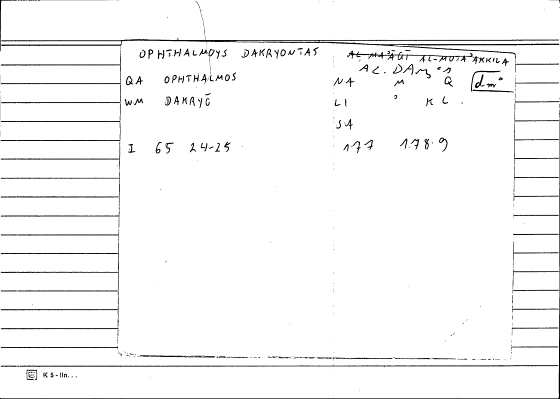 OPHTHALMOYS DAKRYONTAS
QA OPHTHALMOS
WM DAKRYŌ
I 65 24-25
AL-MUTA'AKKILA
NA M Q
LI ' KL.
SA
177 178.9
K 5 - lin. . .